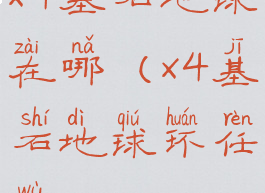 x4基石地球
zài nǎ jī
在哪（x4基
shí dì qiú huán rèn
石地球环任
wù